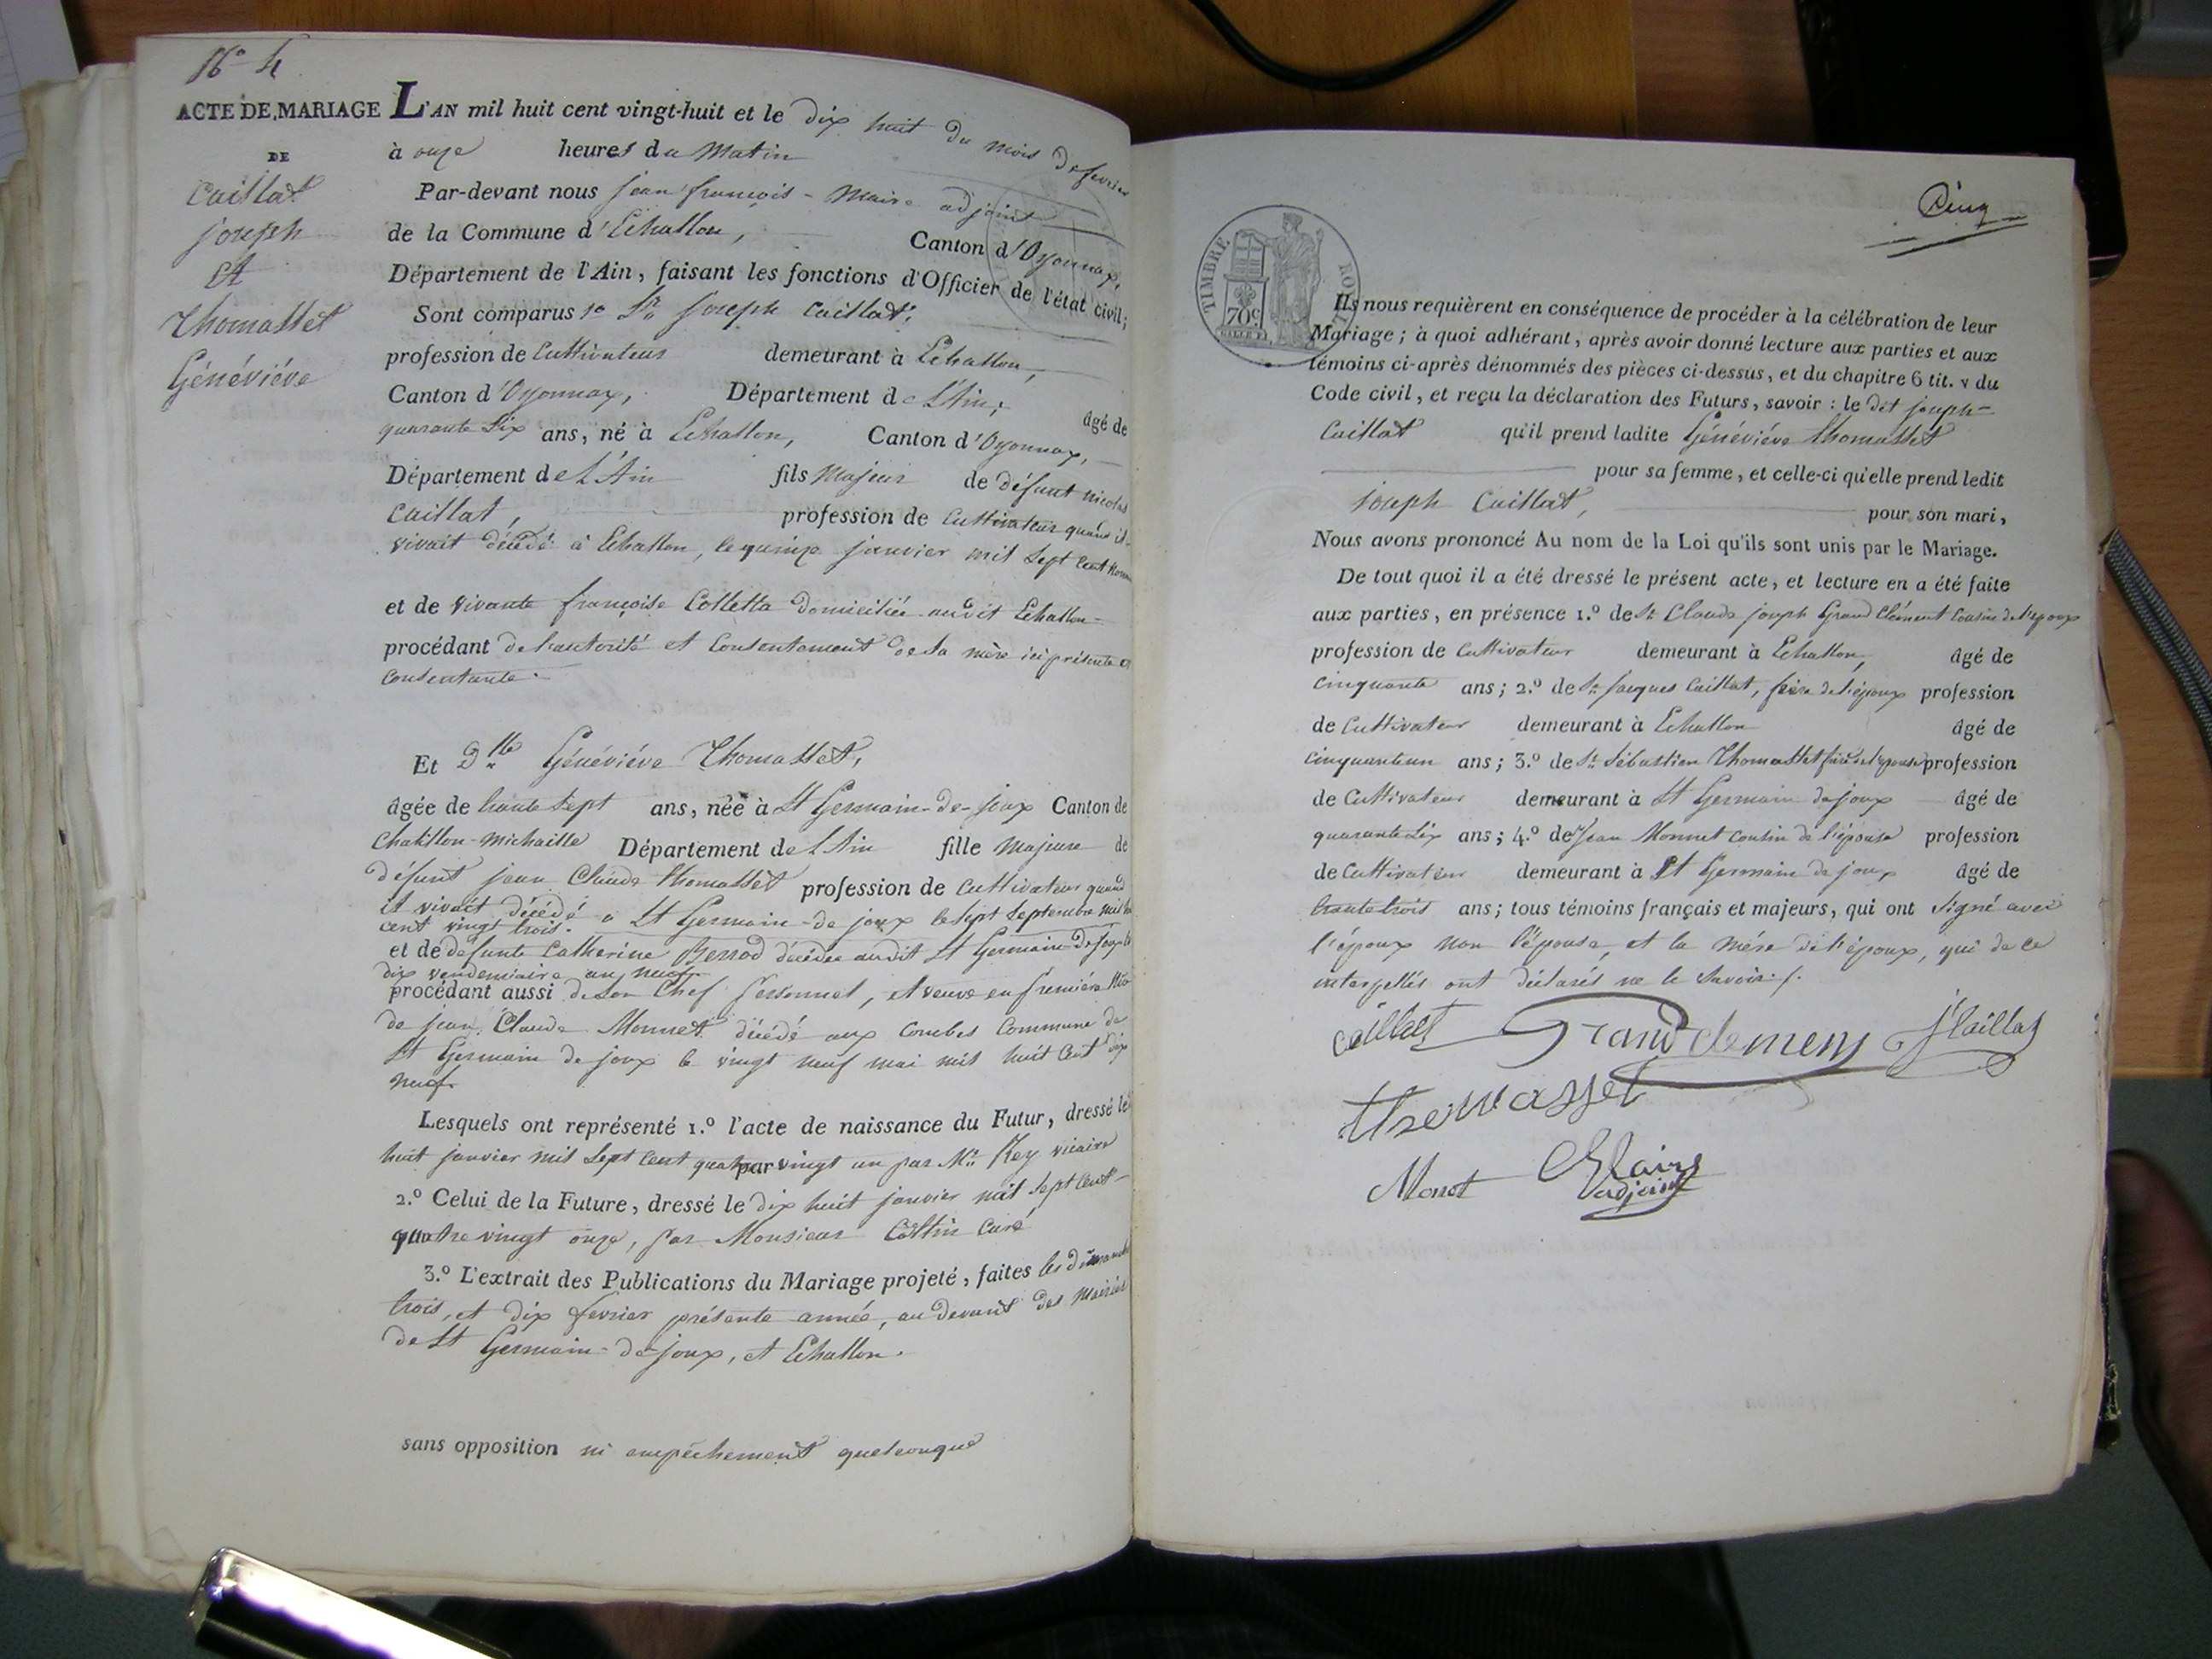 N° 4
ACTE DE MARIAGE
DE
Caillat
joseph
Et
Thomasset
Généviéve
L'AN mil huit cent vingt-huit et le dix huit du mois de fevrier
à onze heures du Matin
Par-devant nous jean françois - Maire adjoint
de la Commune d'Echallon, Canton d'Oyonnax,
Département de l'Ain, faisant les fonctions d'Officier de l'état civil;
Sont comparus 1° Sr joseph Caillat,
profession de Cultivateur demeurant à Echallon,
Canton d'Oyonnax, Département de L'Ain, âgé de
quarante Six ans, né à Echallon, Canton d'Oyonnax,
Département de L'Ain fils Majeur de défunt nicolas
Caillat, profession de Cultivateur quand il
vivait décédé à Echallon, le quinze janvier mil Sept Cent
et de vivante françoise Colletta domiciliée audit Echallon
procédant de l'autorité et Consentement de Sa mère ici présente et
Consentante.
Et Dlle Généviéve Thomasset,
âgée de trente Sept ans, née à St Germain-de-joux Canton de
Chatillon-Michaille Département de L'Ain fille Majeure de
défunt jean Claude thomasset profession de Cultivateur quand
il vivait décédé a St Germain-de joux le Sept Septembre mil huit
cent vingt trois.
et de défunte Catherine Berrod décédée audit St Germain de joux le
dix vendemiaire an neuf
procédant aussi de son Chef Personnel, et veuve en première
de jean Claude Monnet décédé aux Combes Commune de
St Germain de joux le vingt neuf mai mil huit Cent dix
neuf
Lesquels ont représenté 1.° l'acte de naissance du Futur, dressé le
huit janvier mil Sept Cent quatre vingt un par Mr Rey vicaire
par
2.° Celui de la Future, dressé le dix huit janvier mil Sept Cent
quatre vingt onze, par Monsieur Collin Curé
3.° L'extrait des Publications du Mariage projeté, faites les dimanches
trois, et dix fevrier présente année, au devant des Mairies
de St Germain-de-joux, et Echallon.
sans opposition ni empêchement quelconque
Cinq
TIMBRE ROYAL
70c
Ils nous requièrent en conséquence de procéder à la célébration de leur
Mariage; à quoi adhérant, après avoir donné lecture aux parties et aux
témoins ci-après dénommés des pièces ci-dessus, et du chapitre 6 tit. v du
Code civil, et reçu la déclaration des Futurs, savoir : le dit joseph
Caillat qu'il prend ladite Généviéve thomasset
pour sa femme, et celle-ci qu'elle prend ledit
joseph Caillat, pour son mari,
Nous avons prononcé Au nom de la Loi qu'ils sont unis par le Mariage.
De tout quoi il a été dressé le présent acte, et lecture en a été faite
aux parties, en présence 1.° de Sr Claude joseph Grand Clément Cousin de l'époux
profession de Cultivateur demeurant à Echallon, âgé de
Cinquante ans; 2.° de Sr Jacques Caillat, frère de l'époux profession
de Cultivateur demeurant à Echallon âgé de
Cinquanteun ans; 3.° de Sr Sébastien Thomasset frère de l'épouse profession
de Cultivateur demeurant à St Germain de joux âgé de
quarante Six ans; 4.° de Jean Monnet Cousin de l'épouse profession
de Cultivateur demeurant à St Germain de joux âgé de
trente trois ans; tous témoins français et majeurs, qui ont Signé avec
l'époux non l'épouse, et la mére de l'époux, qui de ce
interpellés ont déclarés ne le Savoir.
caillat Grand clemens j Caillat
thomasset
Monet Maire
adjoint